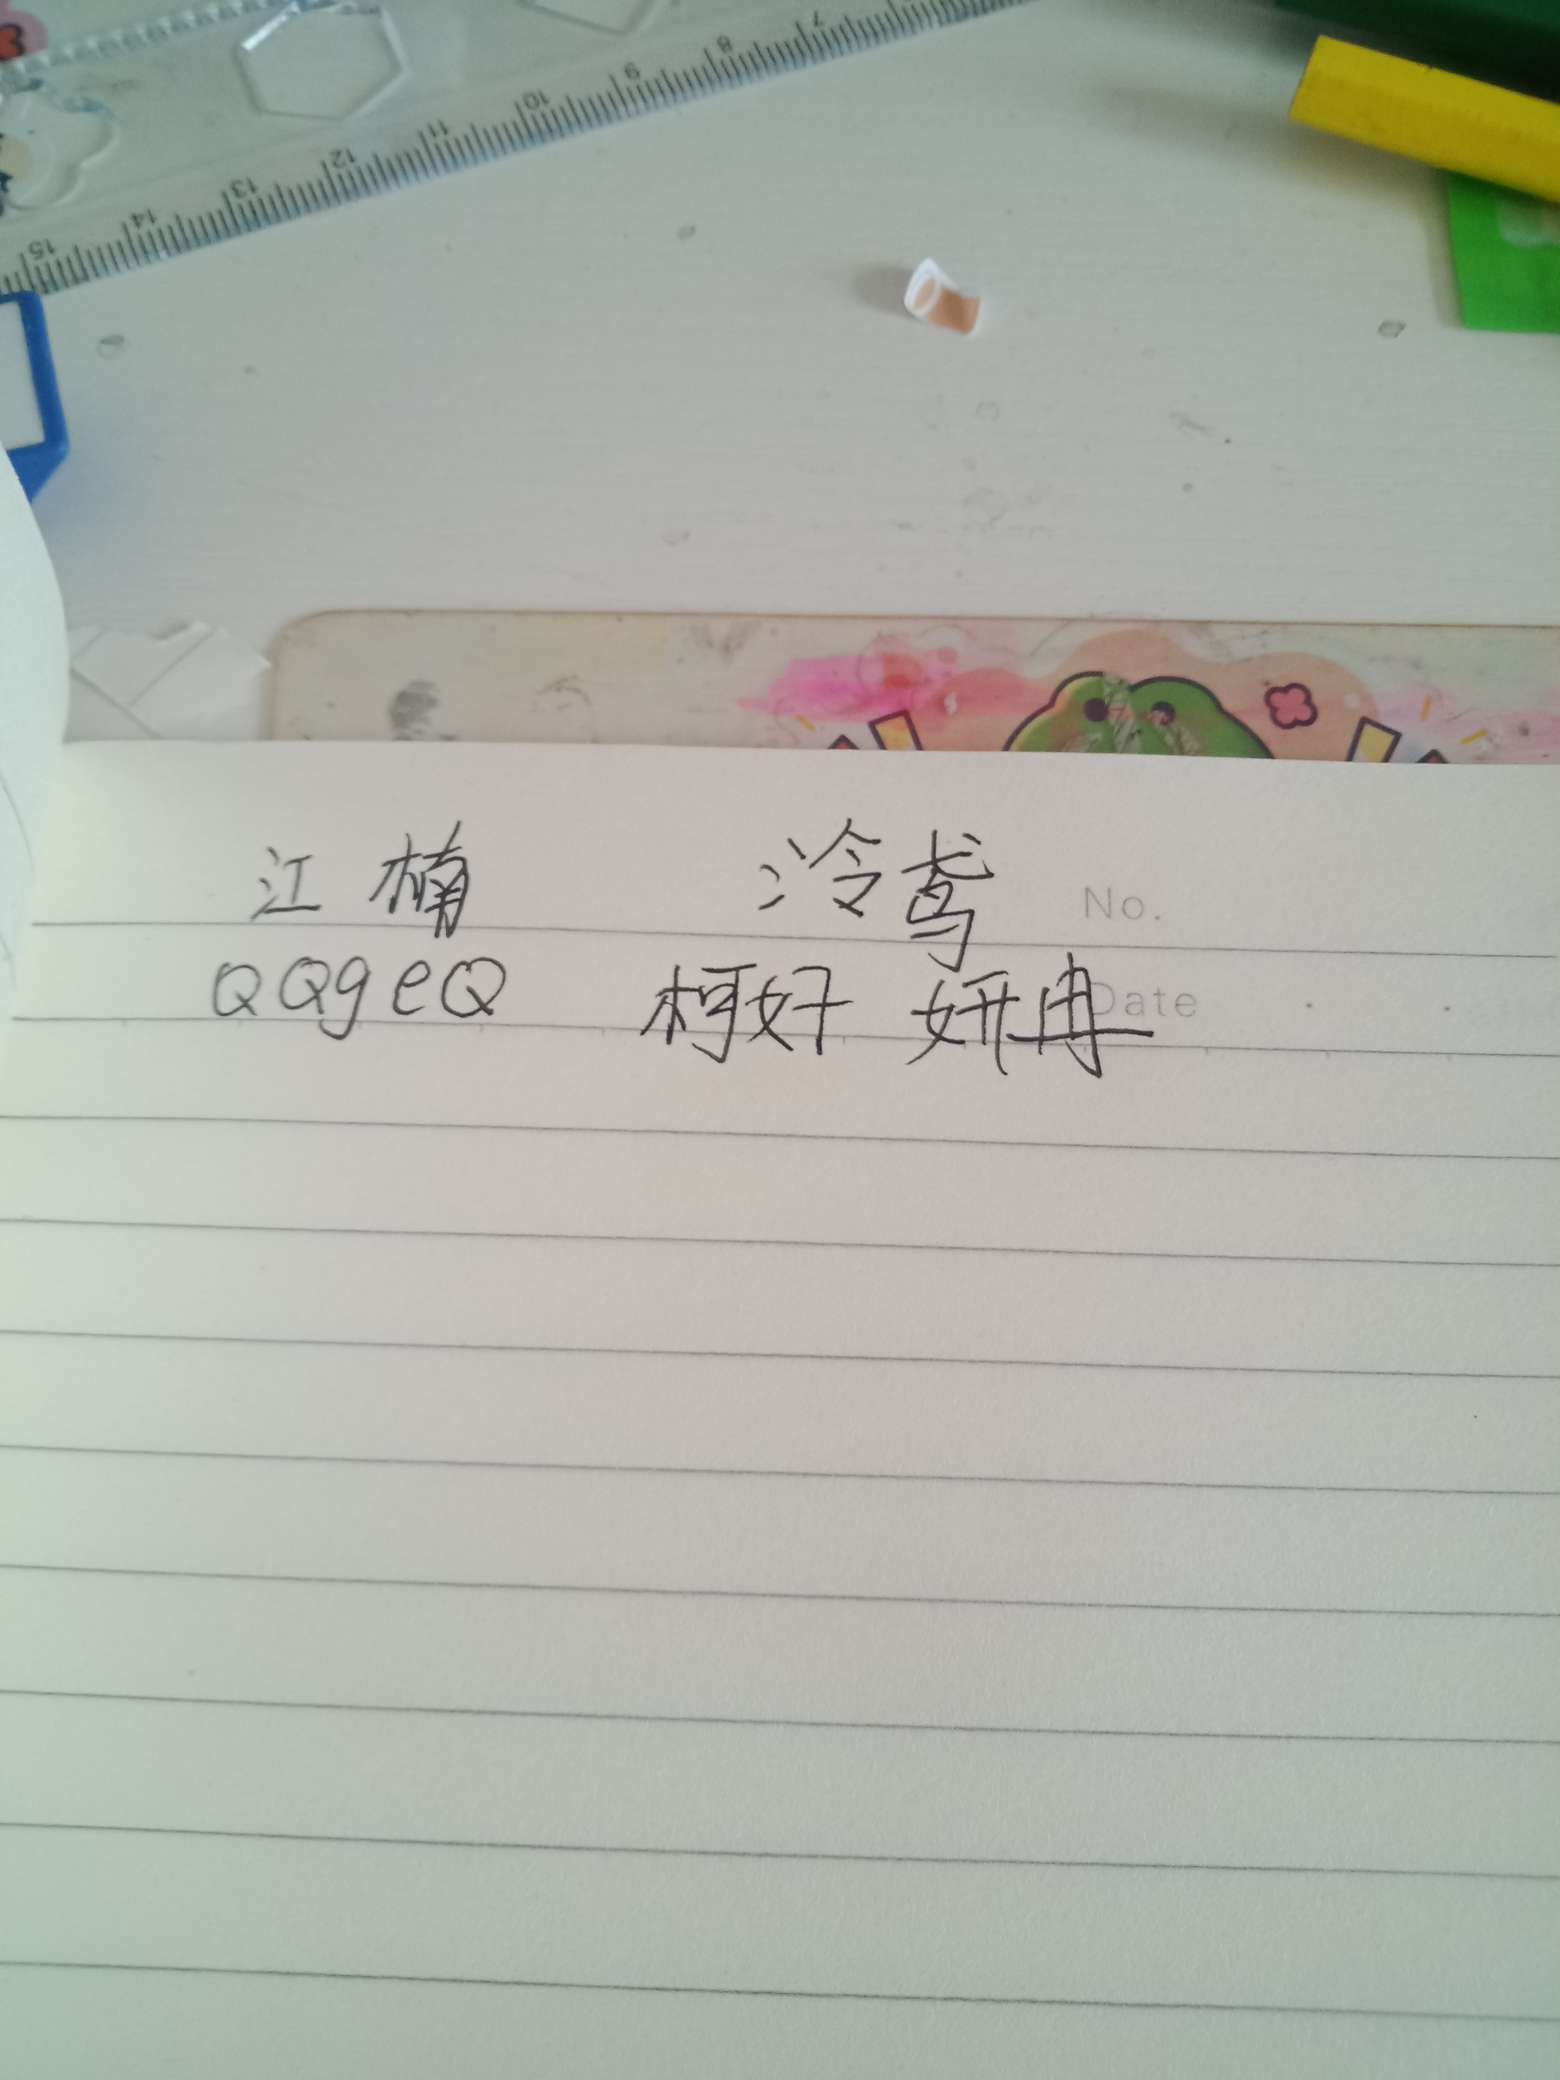 7 8 9 10 11 12 13 14 15
江楠 冷鸢 No.
QQgeQ 柯好 妍冉 Date